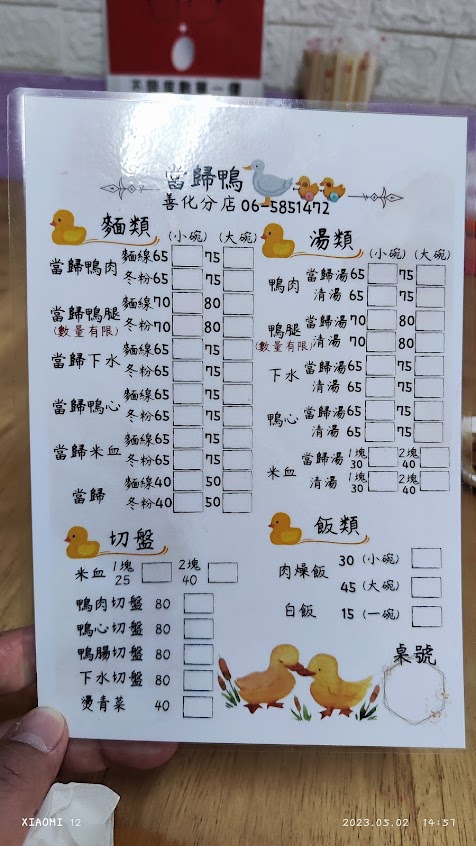 不鏽鋼數單一價
當歸鴨
善化分店 06-5851472
麵類 (小碗) (大碗)
當歸鴨肉 麵線65 75
冬粉65 75
當歸鴨腿 麵線70 80
(數量有限) 冬粉70 80
當歸下水 麵線65 75
冬粉65 75
當歸鴨心 麵線65 75
冬粉65 75
當歸米血 麵線65 75
冬粉65 75
當歸 麵線40 50
冬粉40 50
湯類 (小碗) (大碗)
鴨肉 當歸湯65 75
清湯 65 75
鴨腿 當歸湯70 80
(數量有限) 清湯 70 80
下水 當歸湯65 75
清湯 65 75
鴨心 當歸湯65 75
清湯 65 75
米血 當歸湯 1塊30 2塊40
清湯 1塊30 2塊40
切盤
米血 1塊25 2塊40
鴨肉切盤 80
鴨心切盤 80
鴨腸切盤 80
下水切盤 80
燙青菜 40
飯類
肉燥飯 30 (小碗)
45 (大碗)
白飯 15 (一碗)
桌號
XIAOMI 12
2023.05.02 14:57